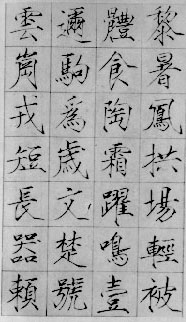 黎暑鳳拱場輕被
體食陶霜躍鳴壹
邇駒爲歲文楚號
雲崗戎短長器頼